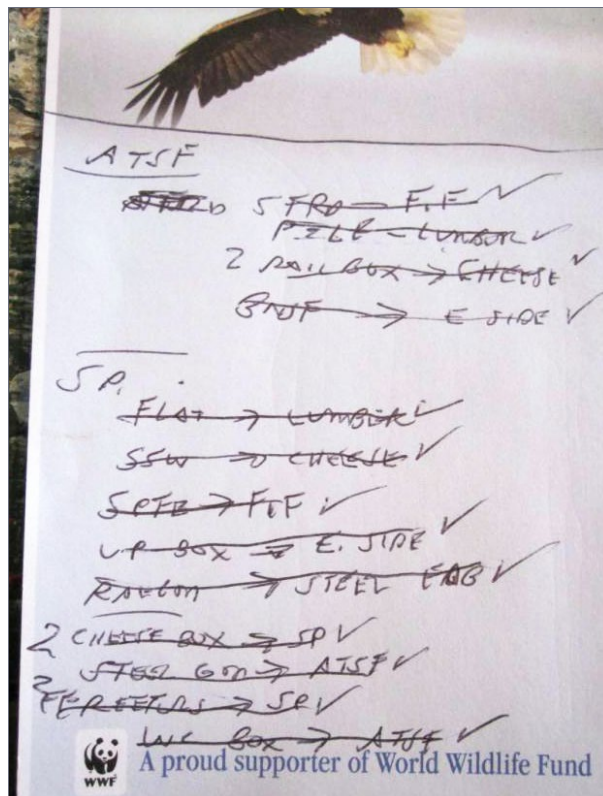 ATSF
5 FRD — F.F ✓
PILE - LUMBER ✓
2 RAIL BOX → CHEESE ✓
BNSF → E SIDE ✓
SP.
FLAT → LUMBER ✓
SSW → CHEESE ✓
SPFE → F.F ✓
UP BOX → E. SIDE ✓
→ STEEL FAB ✓
2 CHEESE BOX → SP ✓
STEEL GON → ATSF ✓
2 REEFERS → SP ✓
BOX → ATSF ✓
WWF
A proud supporter of World Wildlife Fund